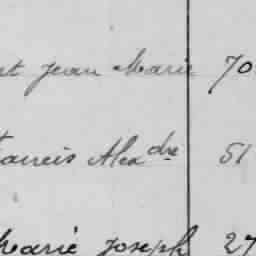 Jean Marie 70
Francis Alexdre 51
Marie Joseph 27